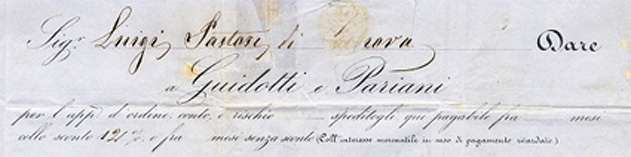 Sigr. Luigi Pastori di Genova Dare
a Guidotti e Pariani
per l'app. d'ordine, conto, e rischio speditogli qui pagabele fra mesi
collo sconto 12 1/2 %, e fra mesi senza sconto (Coll'interesse mercantile in caso di pagamento ritardato.)